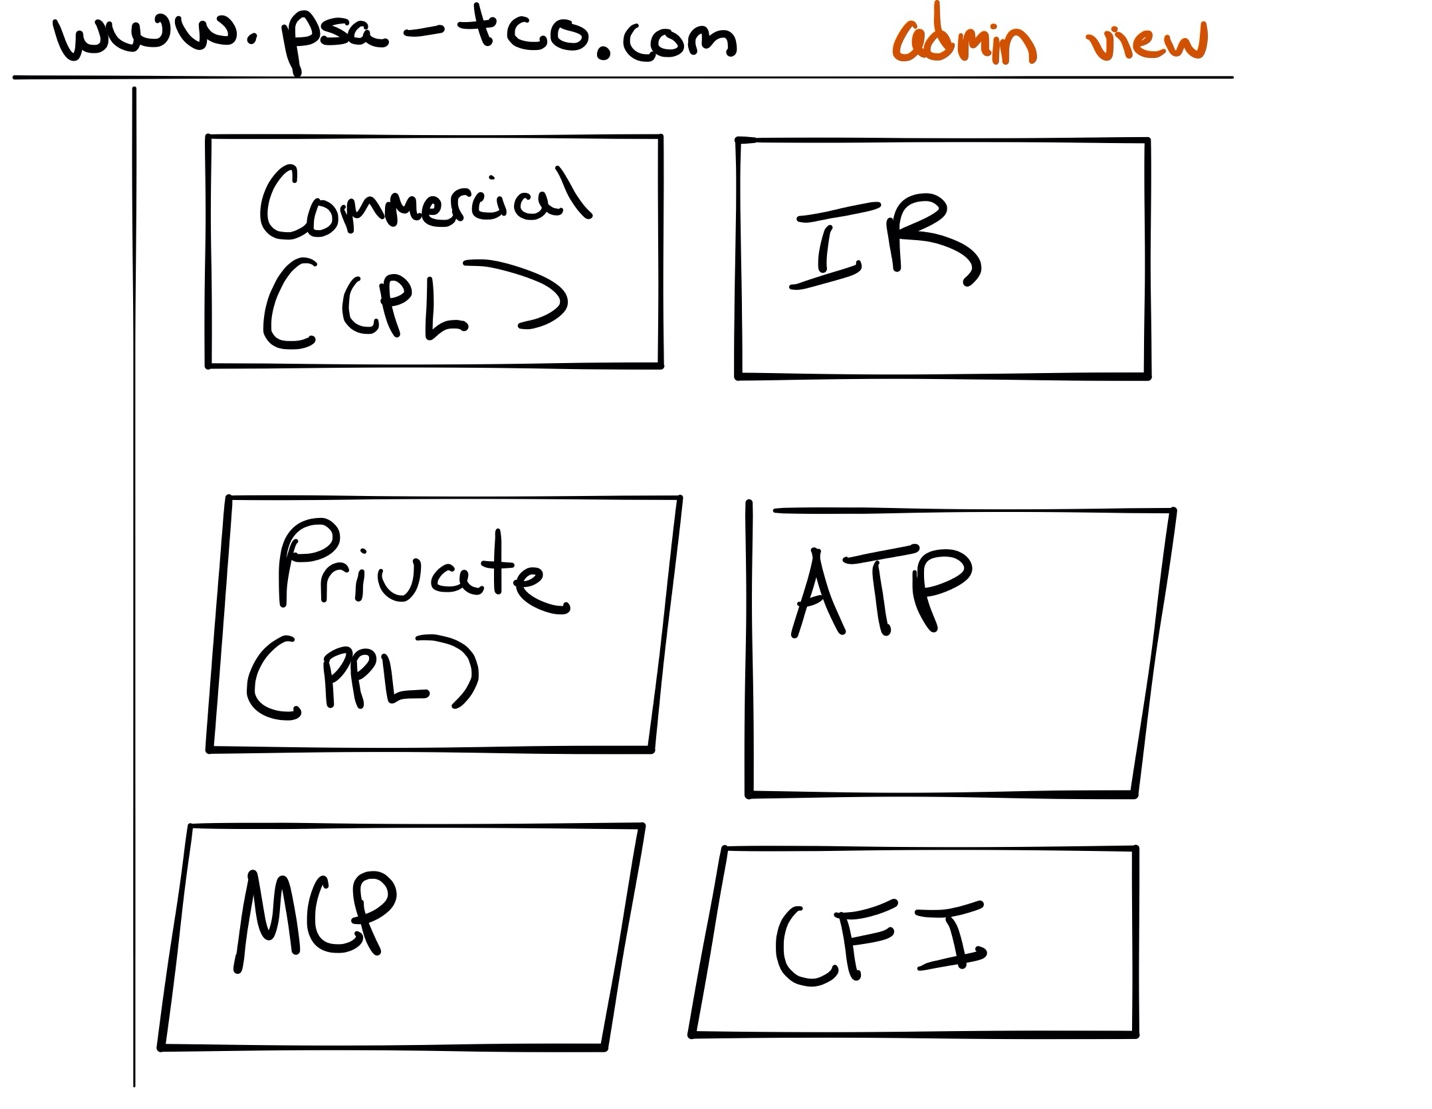 www.psa-tco.com admin view
Commercial
(CPL)
IR
Private
(PPL)
ATP
MCP
CFI